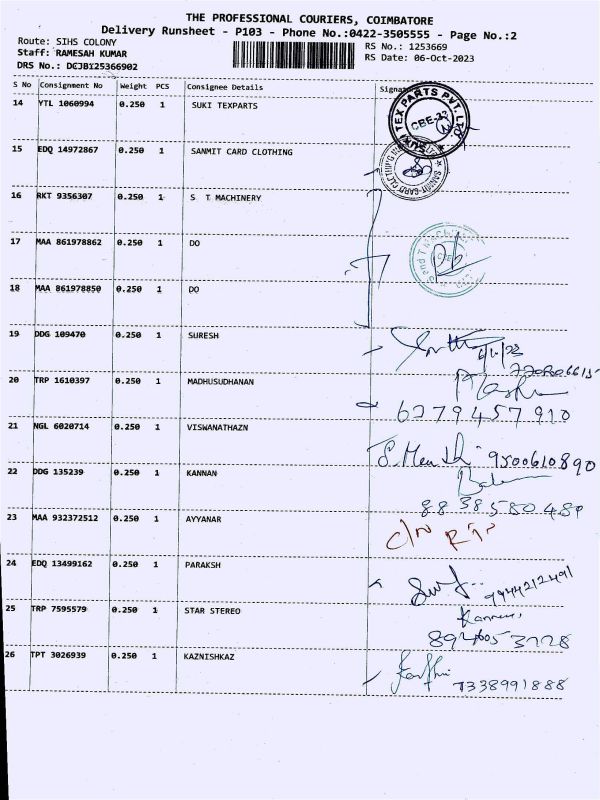 THE PROFESSIONAL COURIERS, COIMBATORE
Delivery Runsheet - P103 - Phone No.:0422-3505555 - Page No.:2
Route: SIHS COLONY
RS No.: 1253669
Staff: RAMESAH KUMAR
RS Date: 06-Oct-2023
DRS No.: DCJBY25366902
S No Consignment No Weight PCS Consignee Details
14 YTL 1060994 0.250 1 SUKI TEXPARTS
SUKI TEX PARTS PVT. LTD.
15 EDQ 14972867 0.250 1 SANMIT CARD CLOTHING
16 RKT 9356307 0.250 1 S T MACHINERY
17 MAA 861978862 0.250 1 DO
18 MAA 861978850 0.250 1 DO
19 DDG 109470 0.250 1 SURESH
20 TRP 1610397 0.250 1 MADHUSUDHANAN
6379457910
21 NGL 6020714 0.250 1 VISWANATHAZN
9500610890
22 DDG 135239 0.250 1 KANNAN
23 MAA 932372512 0.250 1 AYYANAR
24 EDQ 13499162 0.250 1 PARAKSH
9944212491
25 TRP 7595579 0.250 1 STAR STEREO
26 TPT 3026939 0.250 1 KAZNISHKAZ
7338991888